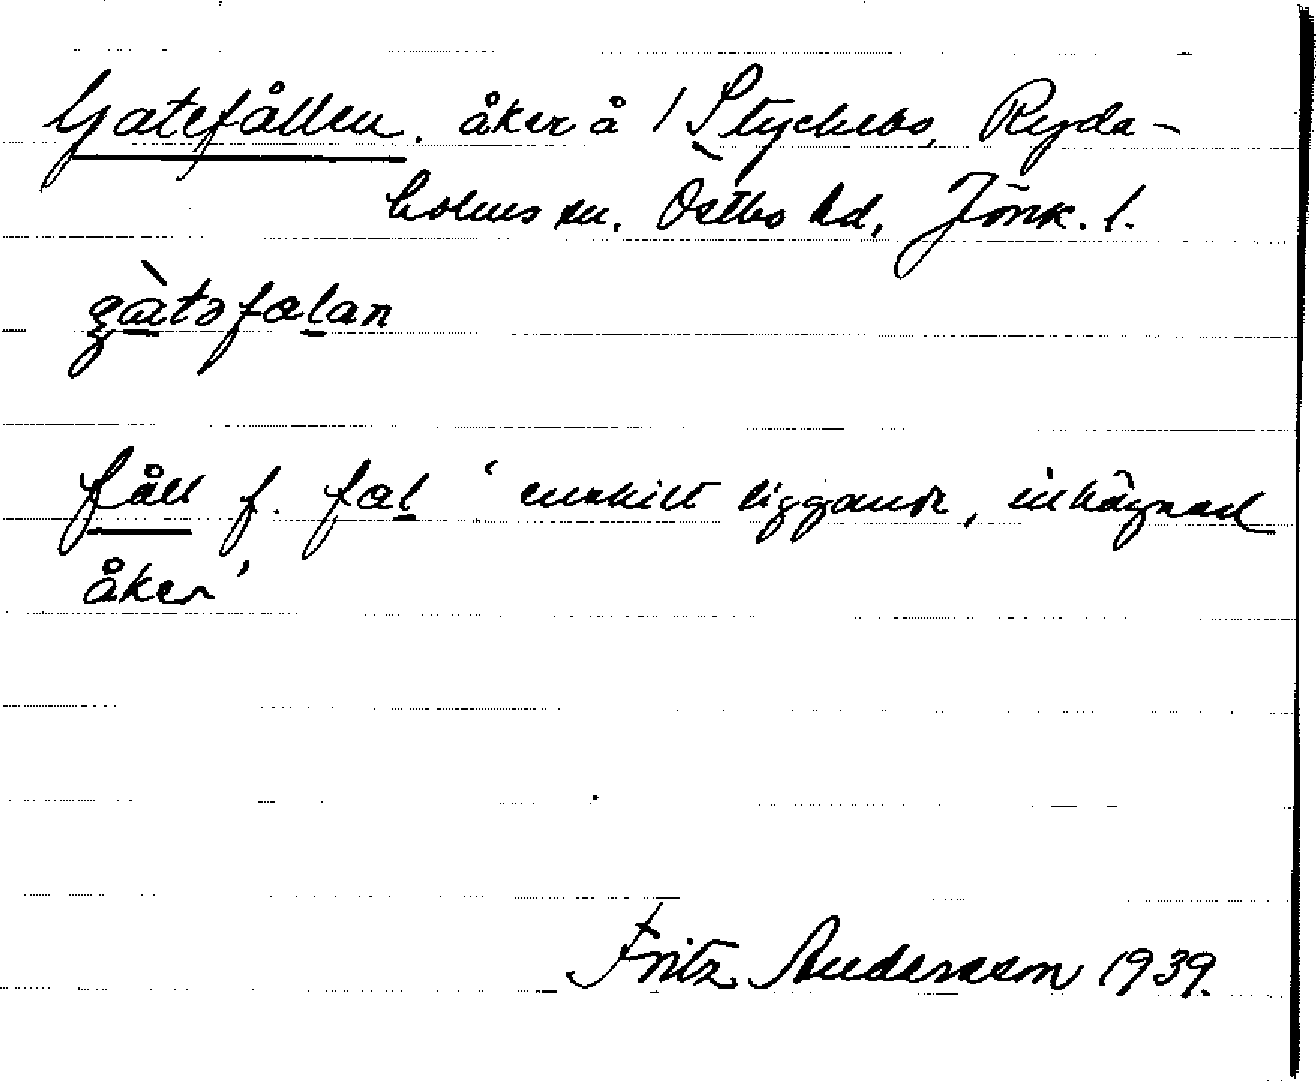 Gatefållen. åker å / Styckebo, Ryda-
holms sn. Östbo hd, Jönk. l.
gàtəfœlan
fåll f. fœl 'enskilt liggande, inhägnad
åker'
Fritz Andersson 1939.